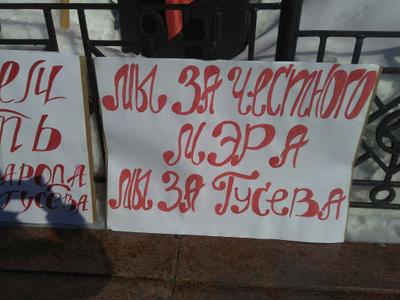 ТЬ
АРОДА
ГУСЕВА
МЫ ЗА ЧЕСТНОГО
МЭРА
МЫ ЗА ГУСЕВА